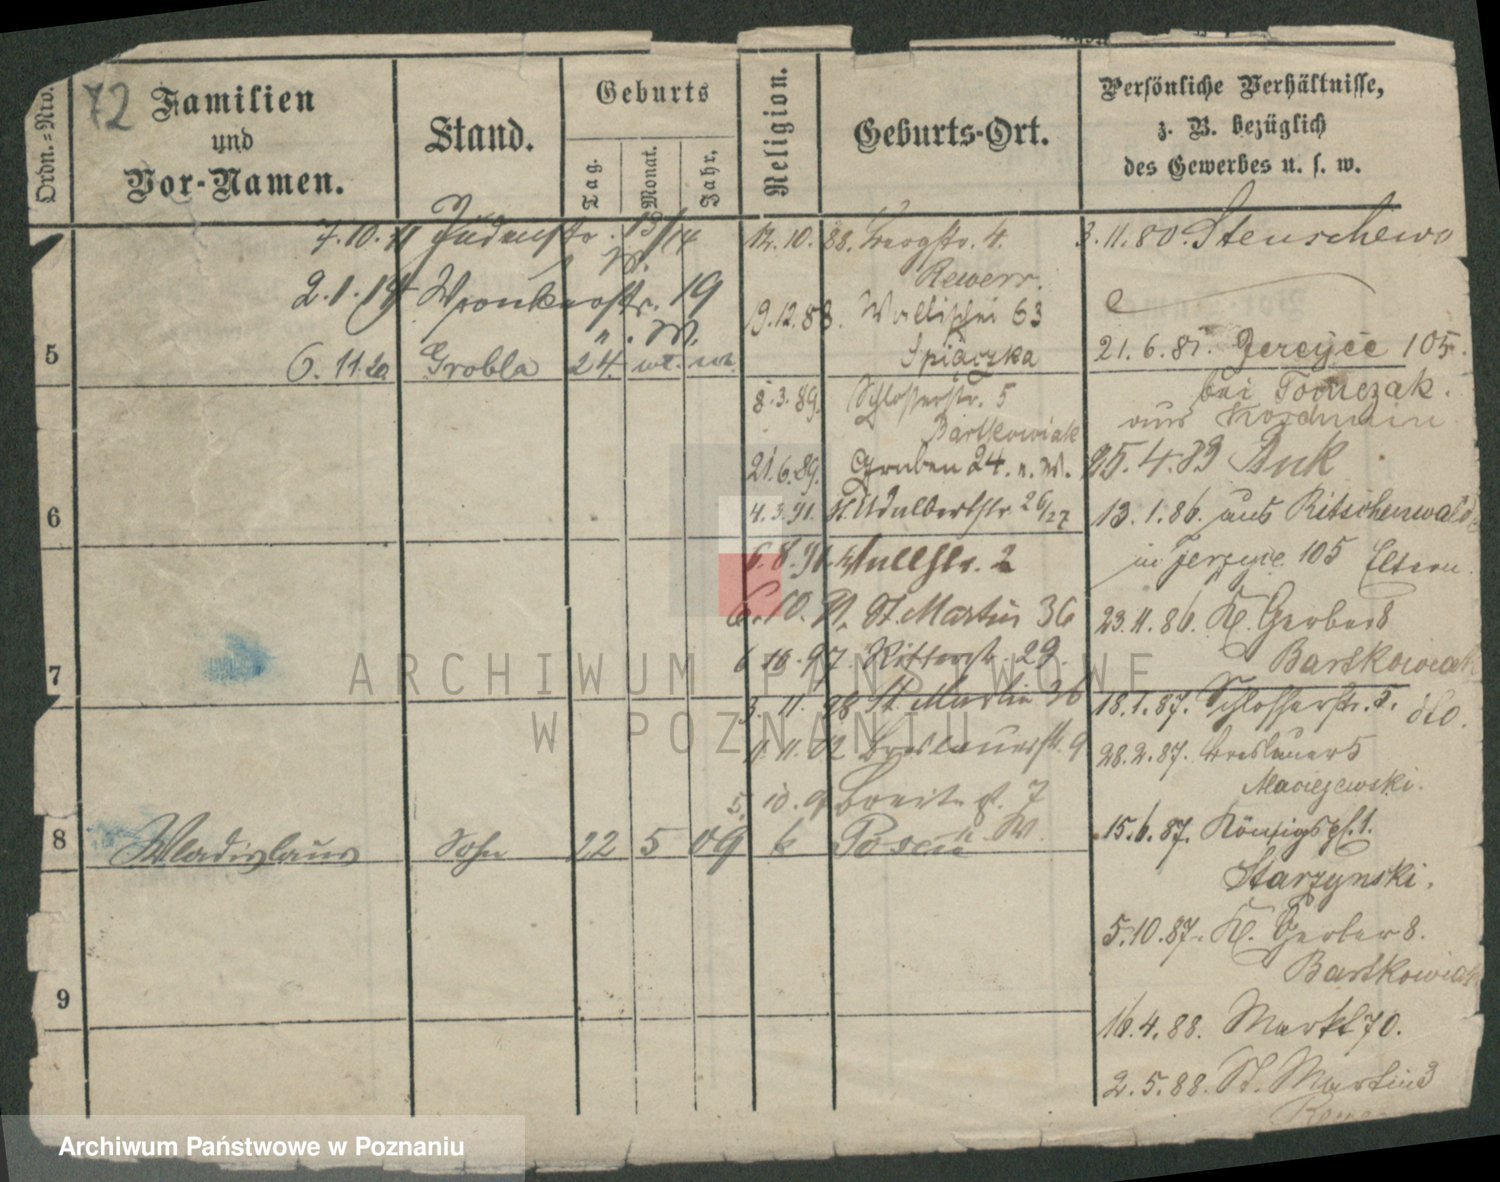 72
Ordn.=Nro.
Familien
und
Vor-Namen.
Stand.
Geburts
Tag.
Monat.
Jahr,
Religion.
Geburts-Ort.
Persönliche Verhältnisse,
z. B. bezüglich
des Gewerbes u. s. w.
7.10.11 Judenstr. 13/14
W.
2.1.19 Wronkerstr. 19
n. W.
6.11.20 Grobla 24.
5
6
7
8
Wladislaus Sohn 22 5 09 k Posen W.
9
12.10.88. Bergstr. 4.
Rewers.
19.12.88. Wallischei 63
Spiączka
8.3.89. Schlosserstr. 5
Bartkowiak
21.6.89. Gruben 24. n. W.
4.3.91. St. Adalbertstr 26/27
6.8.91. 2
6.10.91. St. Martin 36
6.10.97. Ritterstr. 29.
3.11.98 St. Martin 36
11.11.02 Breslauerstr. 9
5.10.9 Breitestr. 7
3.11.80. Stenschewo
21.6.81. Jerzyce 105.
bei Tomczak.
aus Koschmin
25.4.83 Buk
13.1.86. aus Ritschenwalde
in Jerzyce 105 Eltern.
23.11.86. Kl. Gerber 8
Bartkowiak
18.1.87. Schlosserstr. 5. dto.
28.2.87. Breslauer 5
Maciejewski.
15.6.87. Königspl. 1.
Starzynski.
5.10.87. Kl. Gerber 8.
Bartkowiak
16.4.88. Markt 70.
2.5.88. St. Martin 3
ARCHIWUM PAŃSTWOWE
W POZNANIU
Archiwum Państwowe w Poznaniu